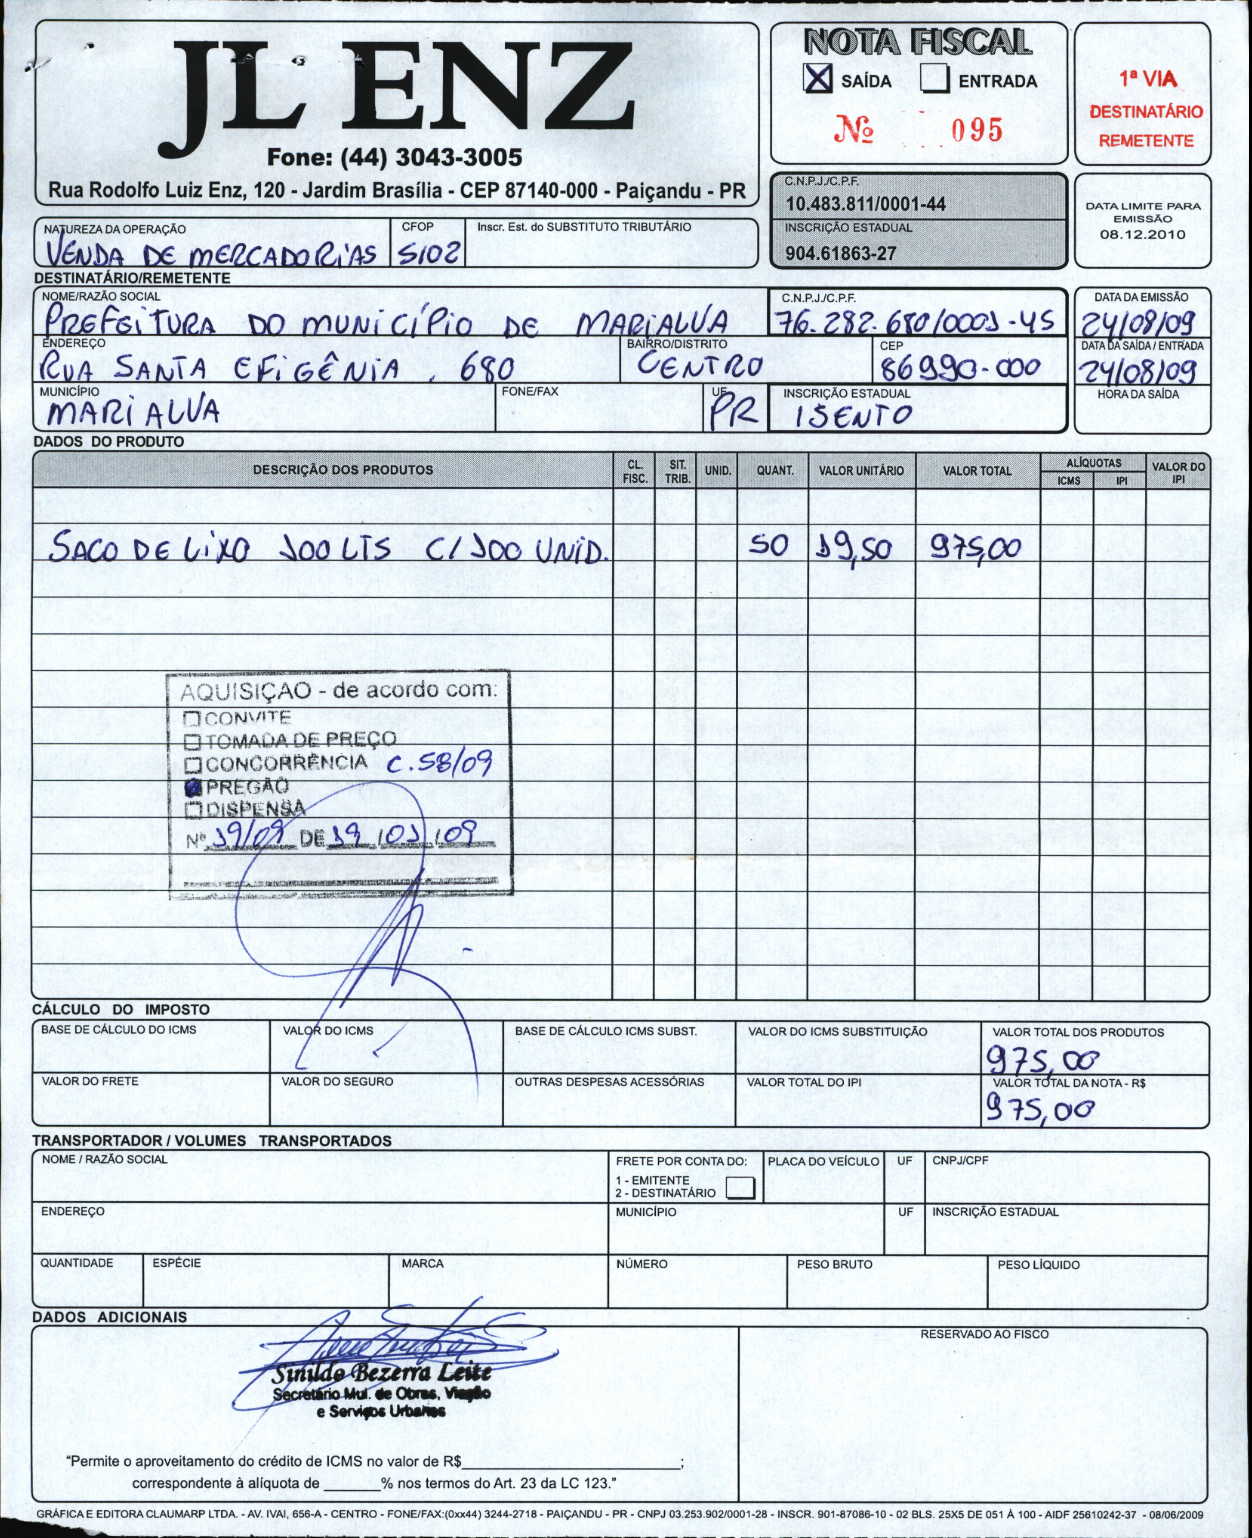 JL ENZ
Fone: (44) 3043-3005
Rua Rodolfo Luiz Enz, 120 - Jardim Brasília - CEP 87140-000 - Paiçandu - PR
NOTA FISCAL
X SAÍDA ENTRADA
Nº 095
1ª VIA
DESTINATÁRIO
REMETENTE
C.N.P.J./C.P.F.
10.483.811/0001-44
INSCRIÇÃO ESTADUAL
904.61863-27
DATA LIMITE PARA
EMISSÃO
08.12.2010
NATUREZA DA OPERAÇÃO CFOP Inscr. Est. do SUBSTITUTO TRIBUTÁRIO
VENDA DE MERCADORIAS 5102
DESTINATÁRIO/REMETENTE
NOME/RAZÃO SOCIAL C.N.P.J./C.P.F. DATA DA EMISSÃO
PREFEITURA DO MUNICÍPIO DE MARIALVA 76.282.680/0001-45 24/08/09
ENDEREÇO BAIRRO/DISTRITO CEP DATA DA SAÍDA / ENTRADA
RUA SANTA EFIGÊNIA, 680 CENTRO 86990-000 24/08/09
MUNICÍPIO FONE/FAX UF INSCRIÇÃO ESTADUAL HORA DA SAÍDA
MARIALVA PR ISENTO
DADOS DO PRODUTO
DESCRIÇÃO DOS PRODUTOS CL. FISC. SIT. TRIB. UNID. QUANT. VALOR UNITÁRIO VALOR TOTAL ALÍQUOTAS ICMS IPI VALOR DO IPI
SACO DE LIXO 100 LTS C/ 100 UNID. 50 19,50 975,00
AQUISIÇÃO - de acordo com:
CONVITE
TOMADA DE PREÇO
CONCORRÊNCIA C.58/09
PREGÃO
DISPENSA
Nº 19/09 DE 19/01/09
CÁLCULO DO IMPOSTO
BASE DE CÁLCULO DO ICMS VALOR DO ICMS BASE DE CÁLCULO ICMS SUBST. VALOR DO ICMS SUBSTITUIÇÃO VALOR TOTAL DOS PRODUTOS
975,00
VALOR DO FRETE VALOR DO SEGURO OUTRAS DESPESAS ACESSÓRIAS VALOR TOTAL DO IPI VALOR TOTAL DA NOTA - R$
975,00
TRANSPORTADOR / VOLUMES TRANSPORTADOS
NOME / RAZÃO SOCIAL FRETE POR CONTA DO: PLACA DO VEÍCULO UF CNPJ/CPF
1 - EMITENTE
2 - DESTINATÁRIO
ENDEREÇO MUNICÍPIO UF INSCRIÇÃO ESTADUAL
QUANTIDADE ESPÉCIE MARCA NÚMERO PESO BRUTO PESO LÍQUIDO
DADOS ADICIONAIS
RESERVADO AO FISCO
Sinildo Bezerra Leite
Secretário Mul. de Obras, Viação
e Serviços Urbanos
"Permite o aproveitamento do crédito de ICMS no valor de R$____;
correspondente à alíquota de ____% nos termos do Art. 23 da LC 123."
GRÁFICA E EDITORA CLAUMARP LTDA. - AV. IVAI, 656-A - CENTRO - FONE/FAX:(0xx44) 3244-2718 - PAIÇANDU - PR - CNPJ 03.253.902/0001-28 - INSCR. 901-87086-10 - 02 BLS. 25X5 DE 051 À 100 - AIDF 25610242-37 - 08/06/2009